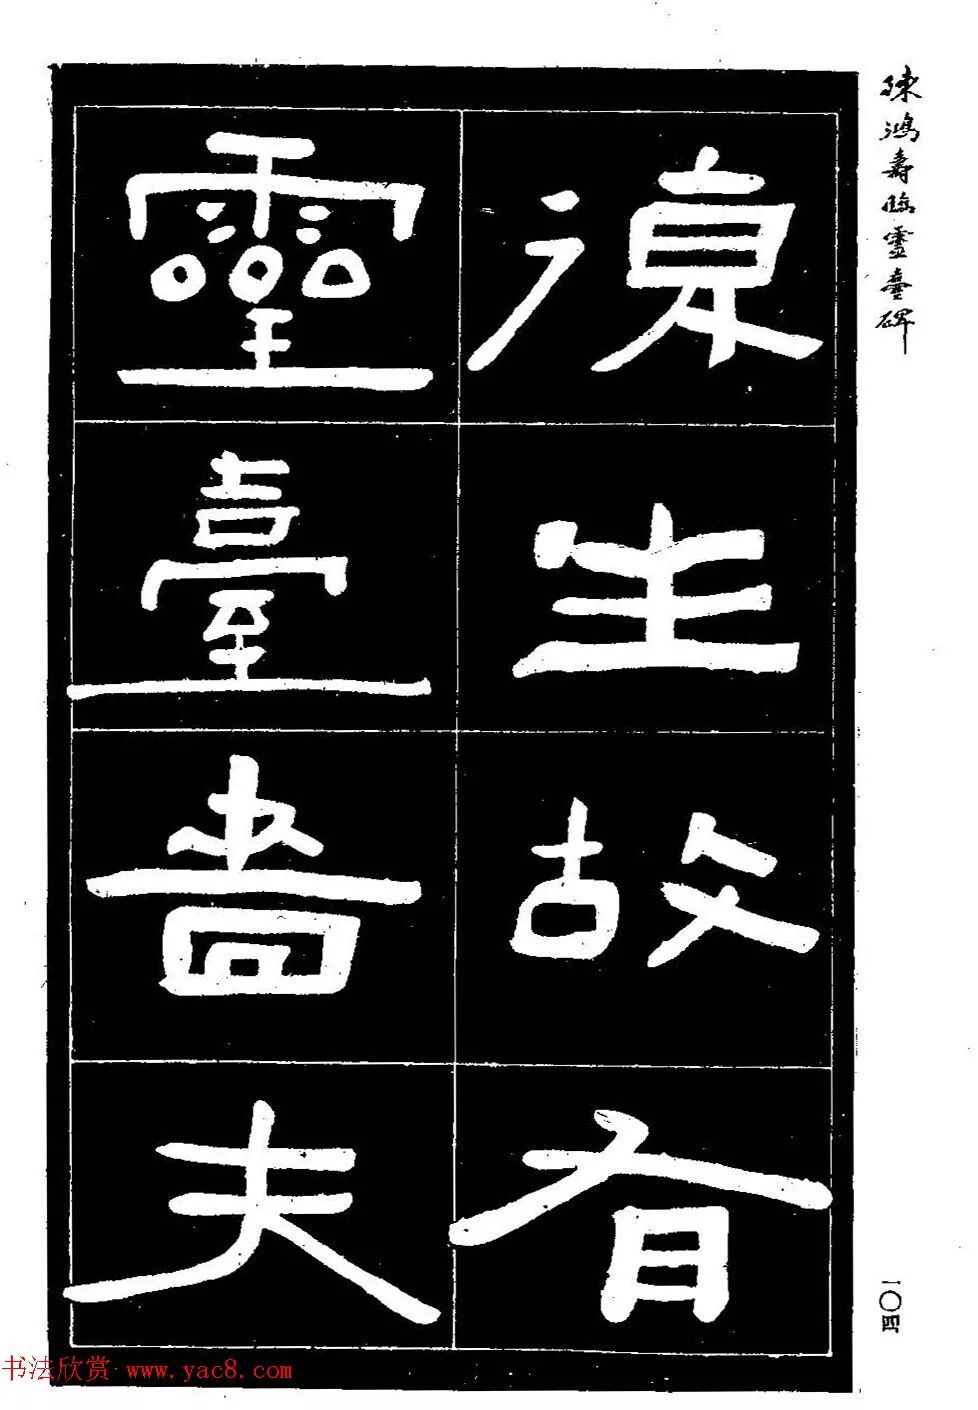 陳鴻壽臨靈臺碑
復生故有
靈臺嗇夫
一〇四
书法欣赏 www.yac8.com